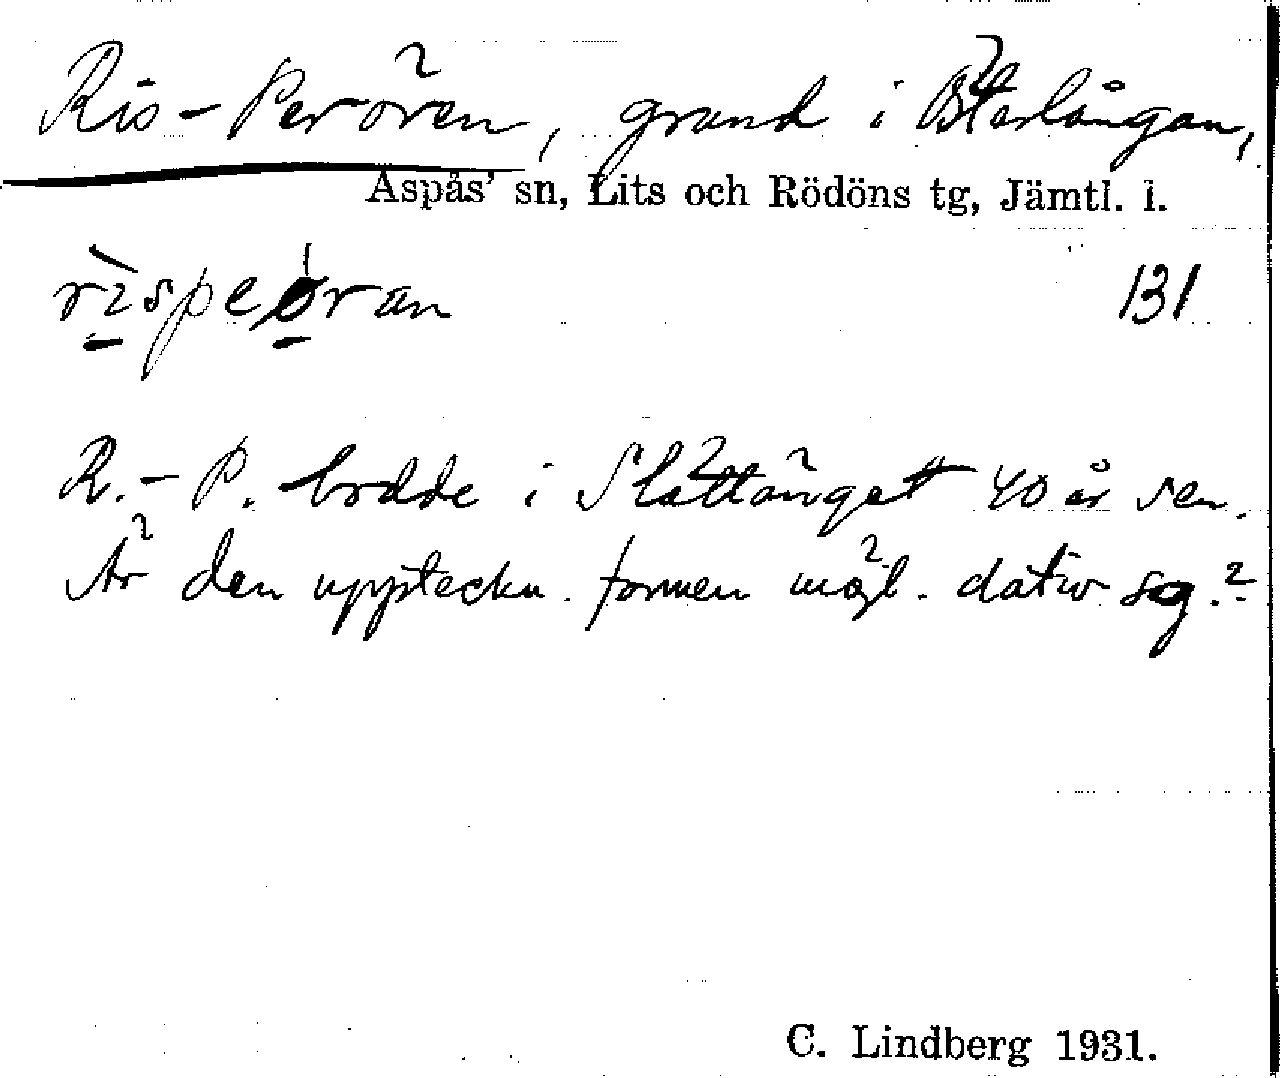 Ris-Perören, grund i Österlången,
Aspås' sn, Lits och Rödöns tg, Jämtl. l.
rìspeøran 131
R.-P. bodde i Slåttänget 40 år sen.
Är den uppteckn. formen möjl. dativ sg.?
C. Lindberg 1931.